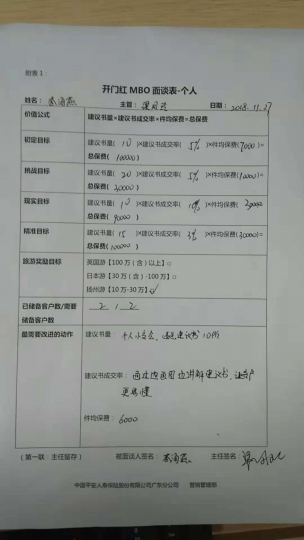 附表1：
开门红MBO面谈表-个人
姓名： 主管： 日期：2018.11.27
价值公式 建议书量×建议书成交率×件均保费=总保费
初定目标 建议书量（10）×建议书成交率（5%）×件均保费(7000)=
总保费（100000）
挑战目标 建议书量（20）×建议书成交率（5%）×件均保费(10000)=
总保费（20000）
现实目标 建议书量（10）×建议书成交率（10%）×件均保费
总保费（90000）
精准目标 建议书量（15）×建议书成交率（3%）×件均保费(30000)=
总保费(100000)
旅游奖励目标 英国游【100万（含）以上】□
日本游【30万（含）-100万】□
扬州游【10万-30万】☑
已储备客户数/需要
储备客户数 2 1 2
最需要改进的动作 建议书量： 建议书10份
建议书成交率： 讲解建议书，让客户
更易懂
件均保费：6000
（第一联：主任留存） 被面谈人签名： 主任签名：
中国平安人寿保险股份有限公司广东分公司 营销管理部